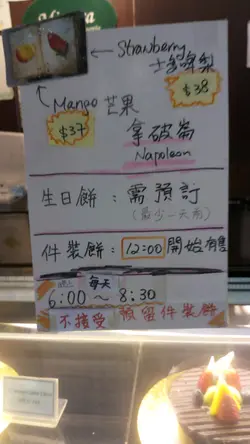 Strawberry
士多啤梨
$38
Mango 芒果
$37
拿破崙
Napoleon
生日餅：需預訂
(最少一天前)
件裝餅：12:00開始有售
每天
6:00～8:30
不接受 預留件裝餅